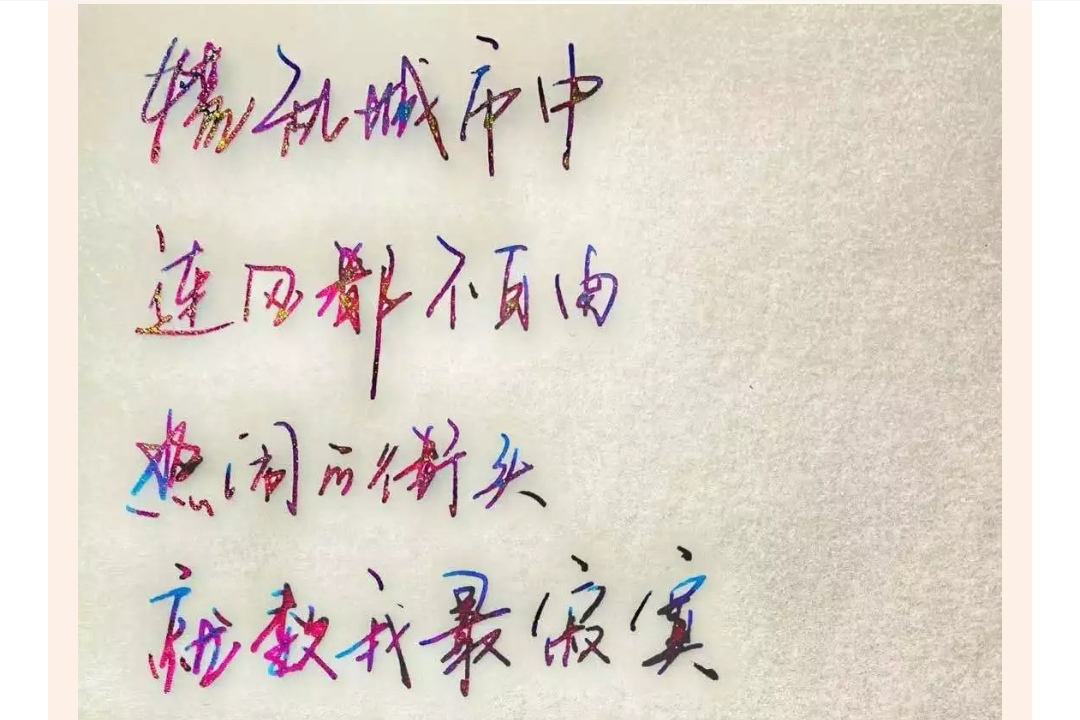 慌乱城市中
连风都不自由
热闹的街头
就数我最寂寞